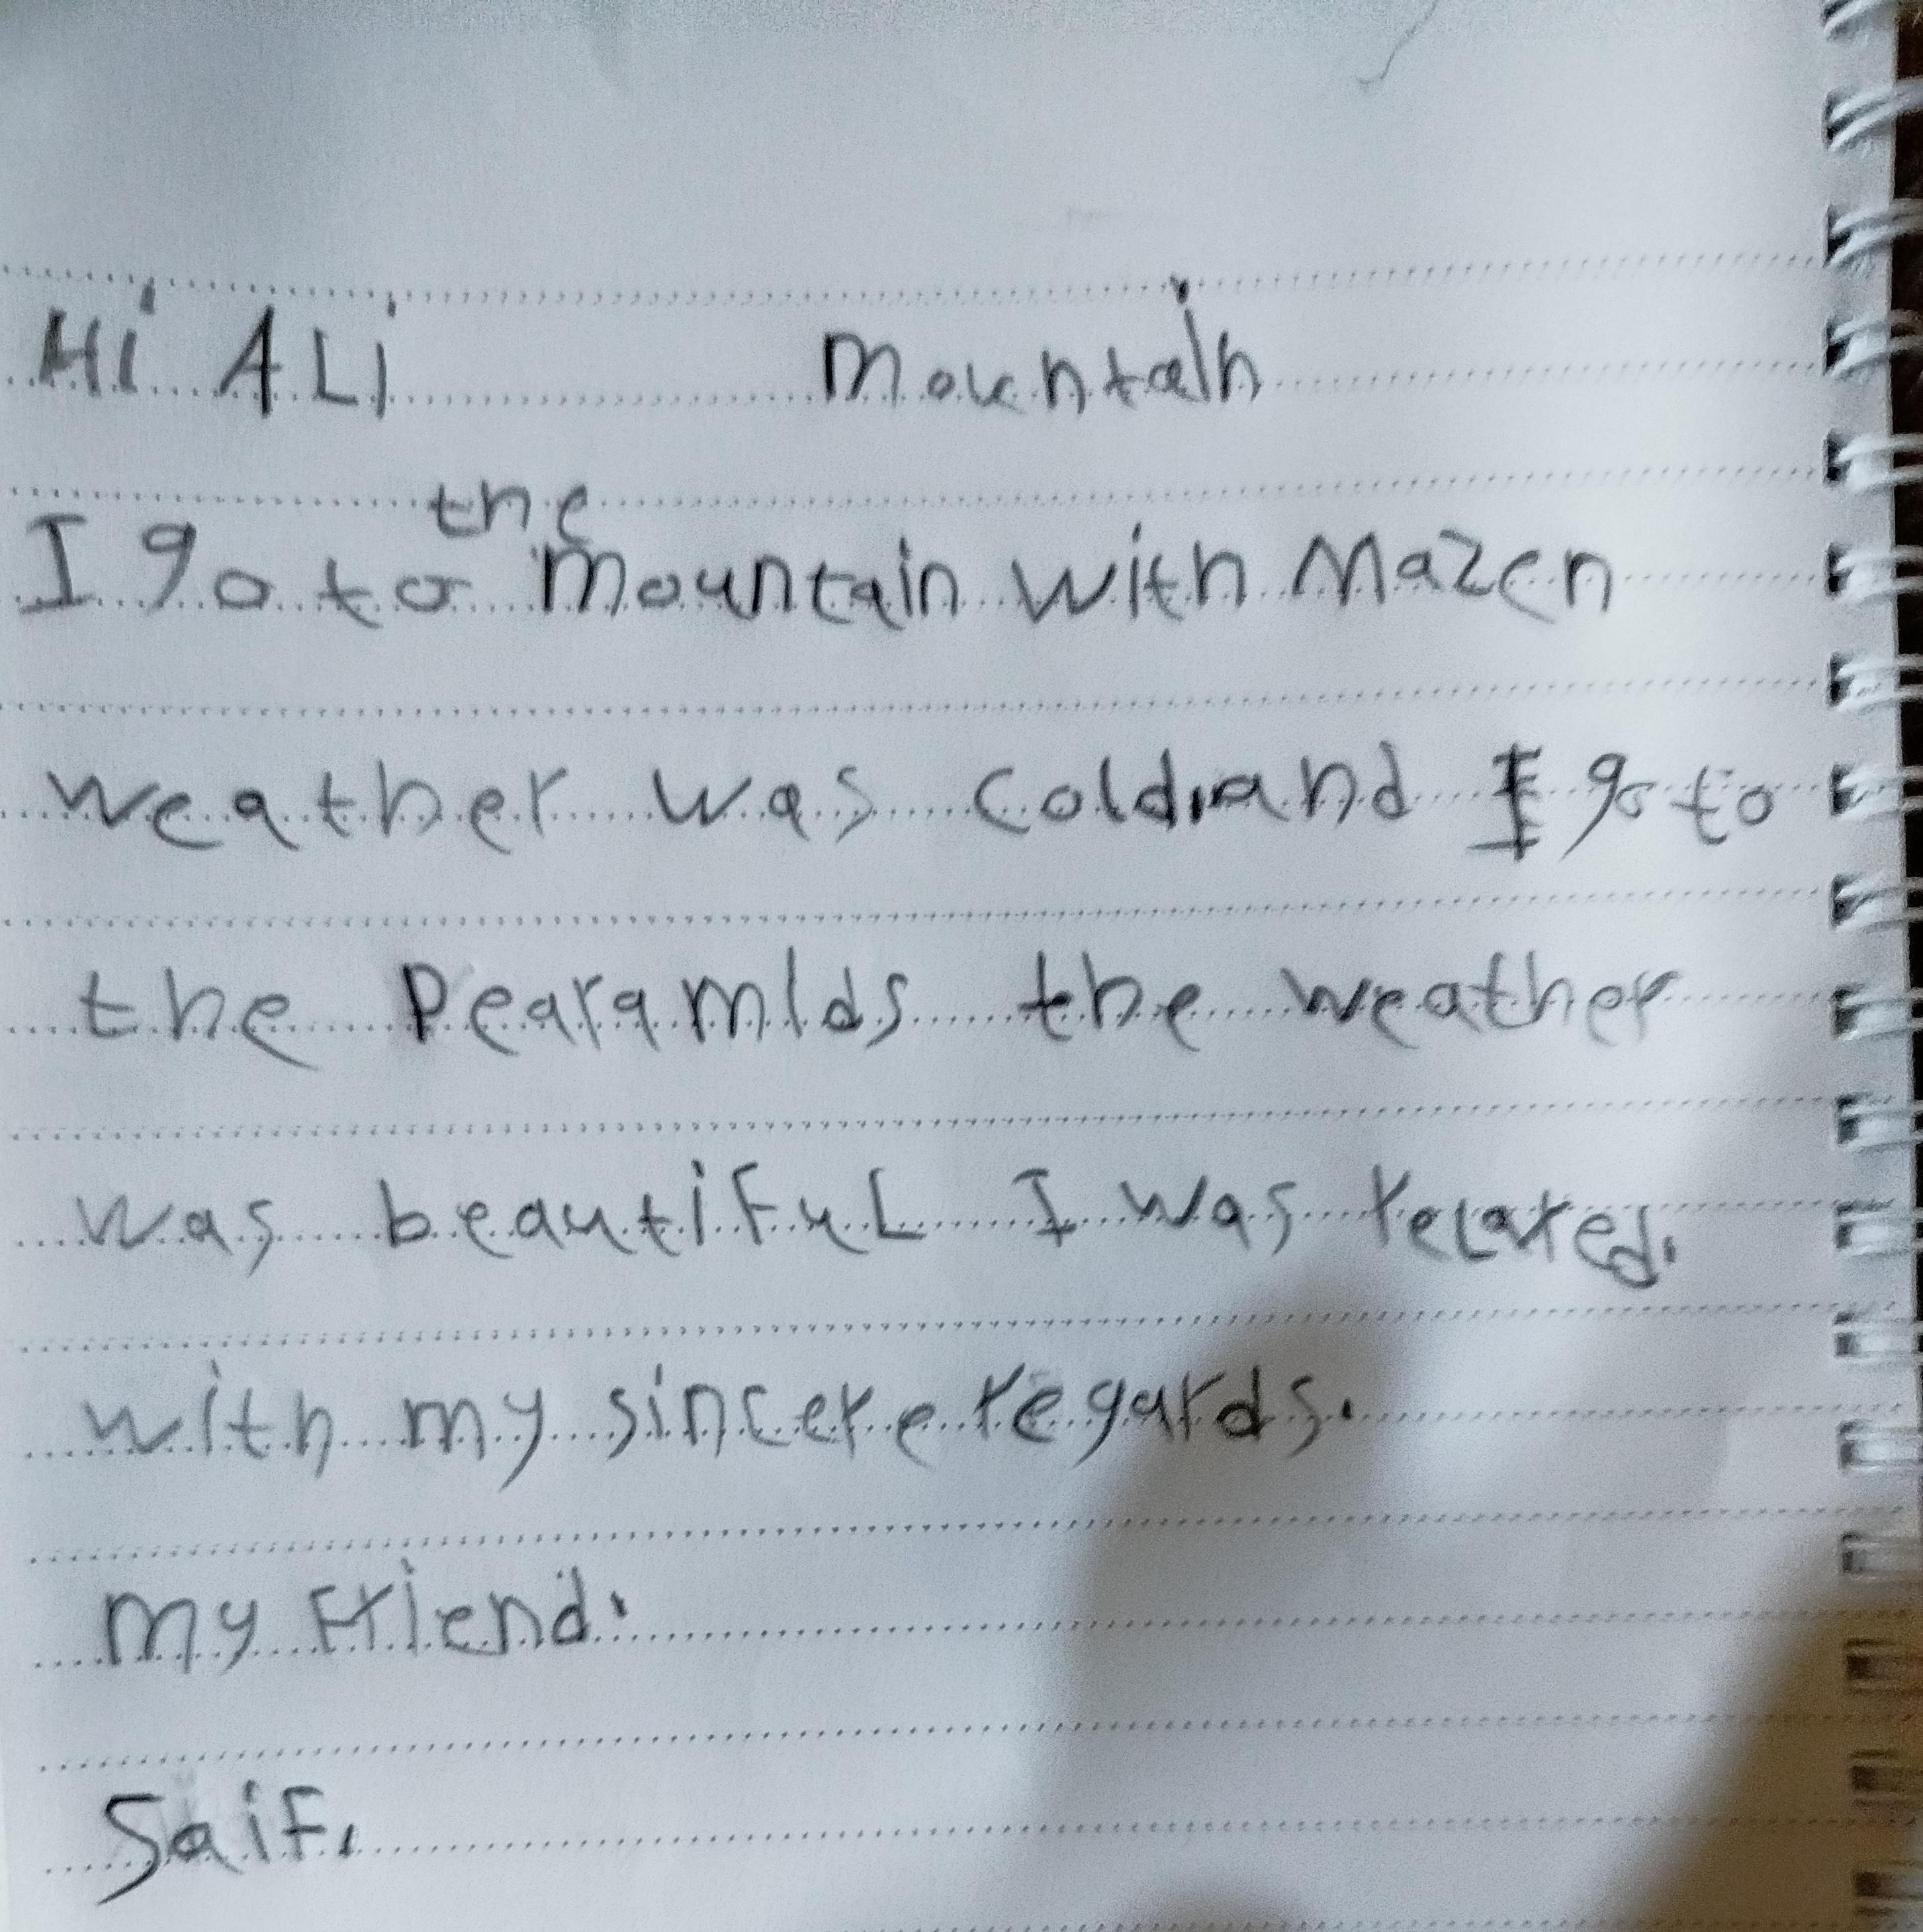 Hi ALi mountain
the
I go to mountain with Mazen
weather was cold,and I go to
the Pearamids the weather
was beautiFuL I was reLaxed.
with my sincere regards.
my Friend.
Saif.